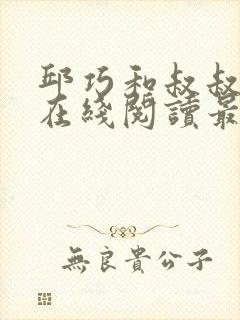 邱巧和叔叔
在綫閱讀最
無良貴公子